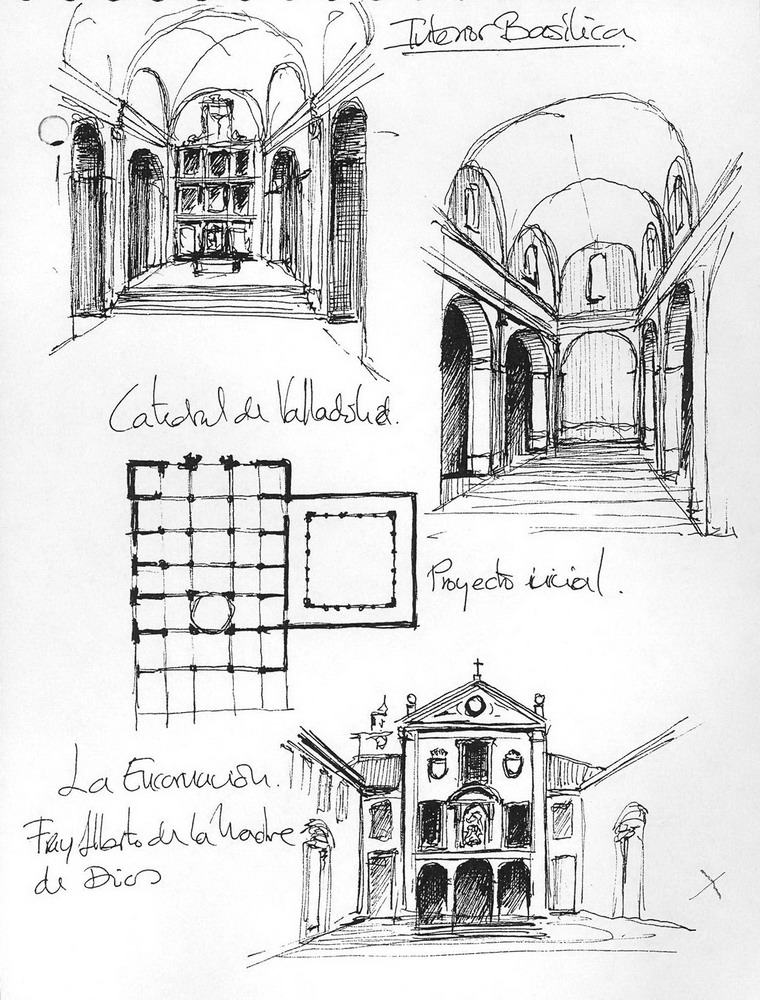 Interior Basílica
Catedral de Valladolid.
Proyecto inicial.
La Encarnación.
Fray Alberto de la Madre
de Dios